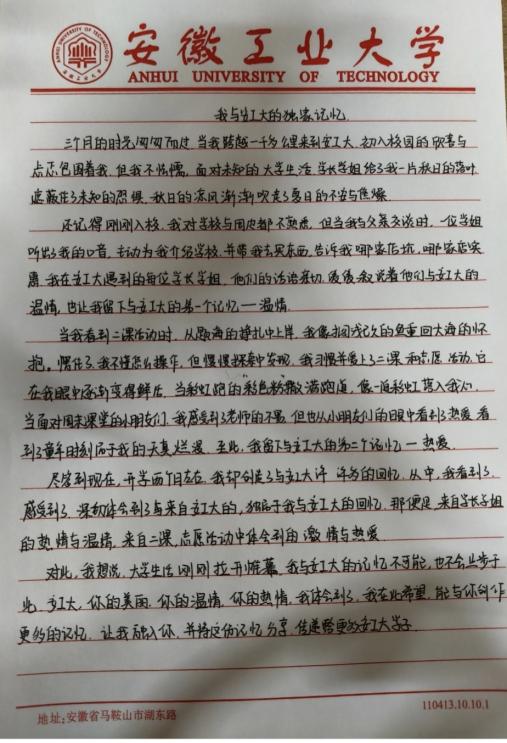 安徽工业大学
ANHUI UNIVERSITY OF TECHNOLOGY
我与安工大的独家记忆
三个月的时光匆匆而过,当我跨越一千多公里来到安工大,初入校园的欣喜与
忐忑包围着我,但我不怯懦,面对未知的大学生活,学长学姐给了我一片秋日的落叶
遮蔽住了未知的恐惧,秋日的凉风渐渐吹走了夏日的不安与焦燥.
还记得刚刚入校,我对学校与周边都不熟悉,但当我与父亲交谈时,一位学姐
听出了我的口音,主动为我介绍学校,并带我去买东西,告诉我哪家店坑,哪家店实
惠,我在安工大遇到的每位学长学姐,他们的话语亲切,缓缓叙说着他们与安工大的
温情,也让我留下与安工大的第一个记忆——温情.
当我看到二课活动时,从题海的挣扎中上岸,我像搁浅已久的鱼重回大海的怀
抱。懵住了,我不懂怎么操作,但慢慢探索中发现,我习惯并爱上了二课和志愿活动,它
在我眼中逐渐变得鲜活,当彩虹跑的彩色粉撒满跑道,像一道彩虹落入我心,
当面对周末课堂的小朋友们,我感受到了老师的不易,但也从小朋友们的眼中看到了热爱,看
到了童年时刻属于我的天真烂漫.至此,我留下与安工大的第二个记忆—热爱.
尽管到现在,开学两个月左右,我却创造了与安工大许许多的回忆,从中,我看到了,
感受到了,深切体会到了与来自安工大的,独属于我与安工大的回忆,那便是,来自学长学姐
的热情与温情,来自二课,志愿活动中体会到的激情与热爱.
对此,我想说,大学生活刚刚拉开帷幕,我与安工大的记忆不可能,也不会止步于
此,安工大,你的美丽,你的温情,你的热情,我体会到了,我在此希望,能与你创作
更多的记忆,让我融入你,并将这份记忆分享,传递给更多安工大学子.
地址:安徽省马鞍山市湖东路
110413.10.10.1